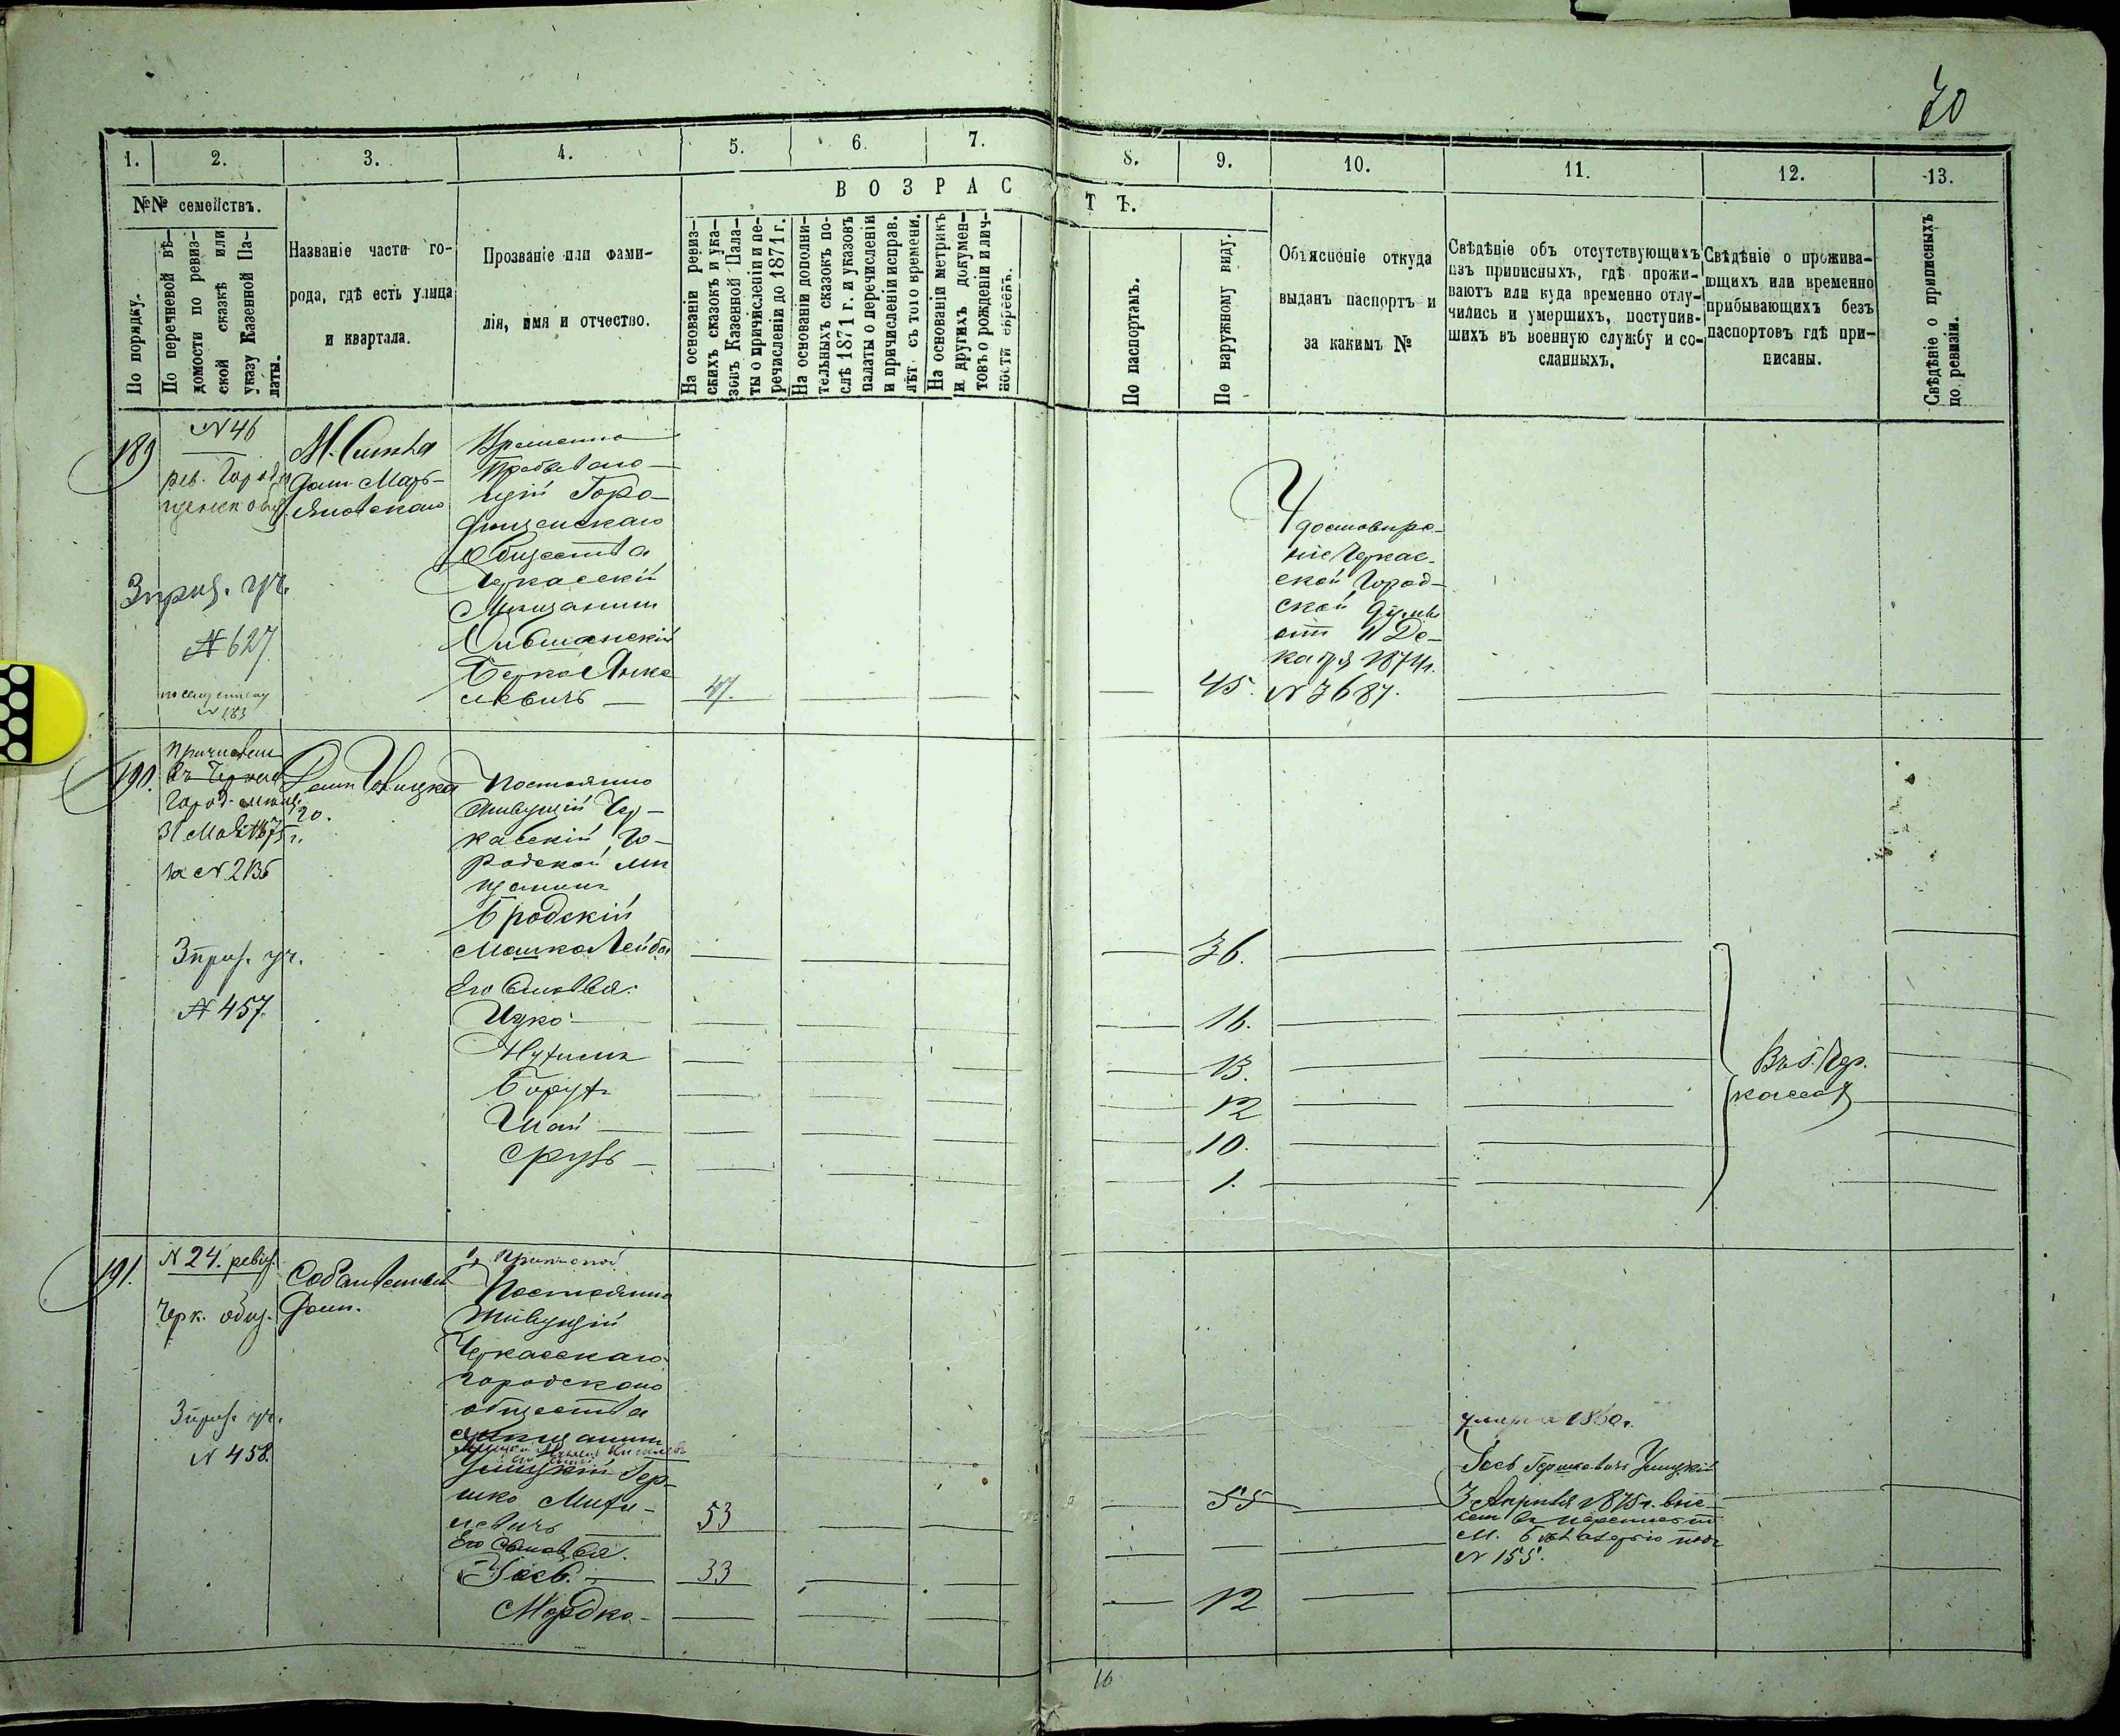 70
1. 2. 3. 4. 5. 6. 7. 8. 9. 10. 11. 12. 13.
№№ семействъ.
По порядку.
По перечневой вѣ-
домости по ревиз-
ской сказкѣ или
указу Казенной Па-
латы.
Названіе части го-
рода, гдѣ есть улица
и квартала.
Прозваніе или фами-
лія, имя и отчество.
ВОЗРАСТЪ.
На основаніи ревиз-
скихъ сказокъ и ука-
зовъ Казенной Пала-
ты о причисленіи и пе-
речисленіи до 1871 г.
На основаніи дополни-
тельныхъ сказокъ по-
слѣ 1871 г. и указовъ
палаты о перечисленіи
и причисленіи исправ.
лѣт съ того времени.
На основаніи метрикъ
и другихъ докумен-
товъ о рожденіи и лич-
ности евреевъ.
По паспортамъ.
По наружному виду.
Объясненіе откуда
выданъ паспортъ и
за какимъ №
Свѣдѣніе объ отсутствующихъ
изъ приписныхъ, гдѣ прожи-
ваютъ или куда временно отлу-
чились и умершихъ, поступив-
шихъ въ военную службу и со-
сланныхъ.
Свѣдѣніе о прожива-
ющихъ или временно
прибывающихъ безъ
паспортовъ гдѣ при-
писаны.
Свѣдѣніе о приписныхъ
по ревизіи.
189
N 46
рев. Городи
щенск общ
3 приз. уч.
N 627.
N 183
М. Смѣла
домъ Марь-
яновскаго
Временно
Пребываю-
щій Горо-
дищенскаго
Общества
Черкасскій
Мѣщанинъ
Ольшанскій
Берко Янке
левичъ
47.
45.
Удостовѣре-
ніе Черкас-
ской Город-
ской Думы
отъ 11 Де-
кабря 1874 г.
N 3687.
190.
Причисленъ
въ Черкас
Город. мѣщ.
31 Мая 1875 г.
за N 2136
3 приз. уч.
N 457.
Домъ
Постоянно
Живущій Чер-
касскій Го-
родской мѣ
щанинъ
Бродскій
Мошко Лейба
Его Сыновья:
Ицко
Нухимъ
Борухъ
Шай
Сруль
36.
16.
13.
12
10.
1.
Въ г. Чер.
кассах
191.
N 24. ревиз.
Черк. общ.
3 приз. уч.
N 458.
Собственный
домъ.
Постоянно
Живущій
Черкасскаго
городскаго
общества
мѣщанинъ
Усицкій Гер-
шко Михе-
левичъ
Его Сыновья.
Іосъ.
Мордко
53
33
55
12
умеръ 1860 г.
Іось Гершковичъ Усицкій
3 Апрѣля 1875 г. вне-
сенъ въ
N 155.
16